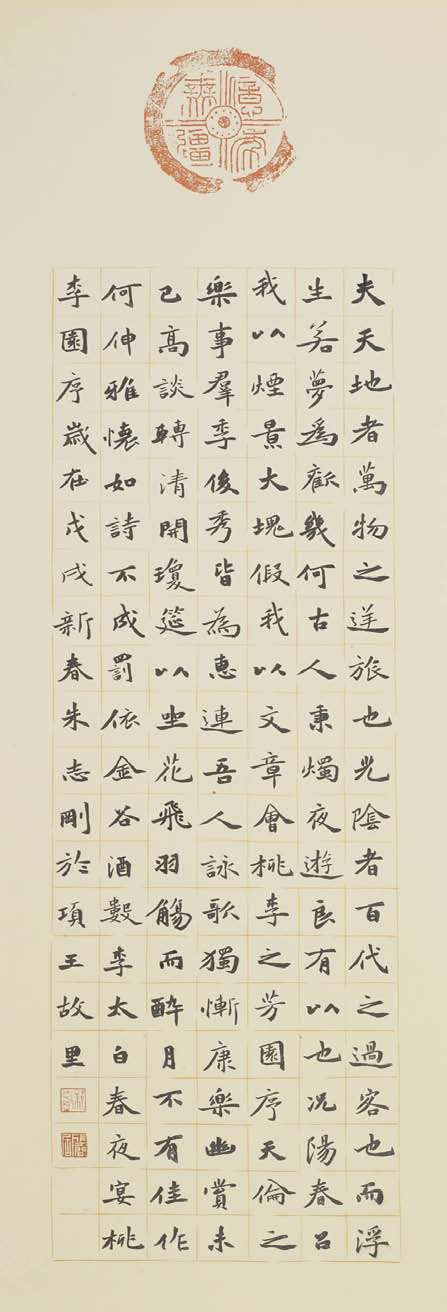 億年無疆
夫天地者萬物之逆旅也光陰者百代之過客也而浮
生若夢爲歡幾何古人秉燭夜遊良有以也況陽春召
我以煙景大塊假我以文章會桃李之芳園序天倫之
樂事羣季俊秀皆為惠連吾人詠歌獨慚康樂幽賞未
已高談轉清開瓊筵以坐花飛羽觴而醉月不有佳作
何伸雅懷如詩不成罰依金谷酒數李太白春夜宴桃
李園序歲在戊戌新春朱志剛於項王故里